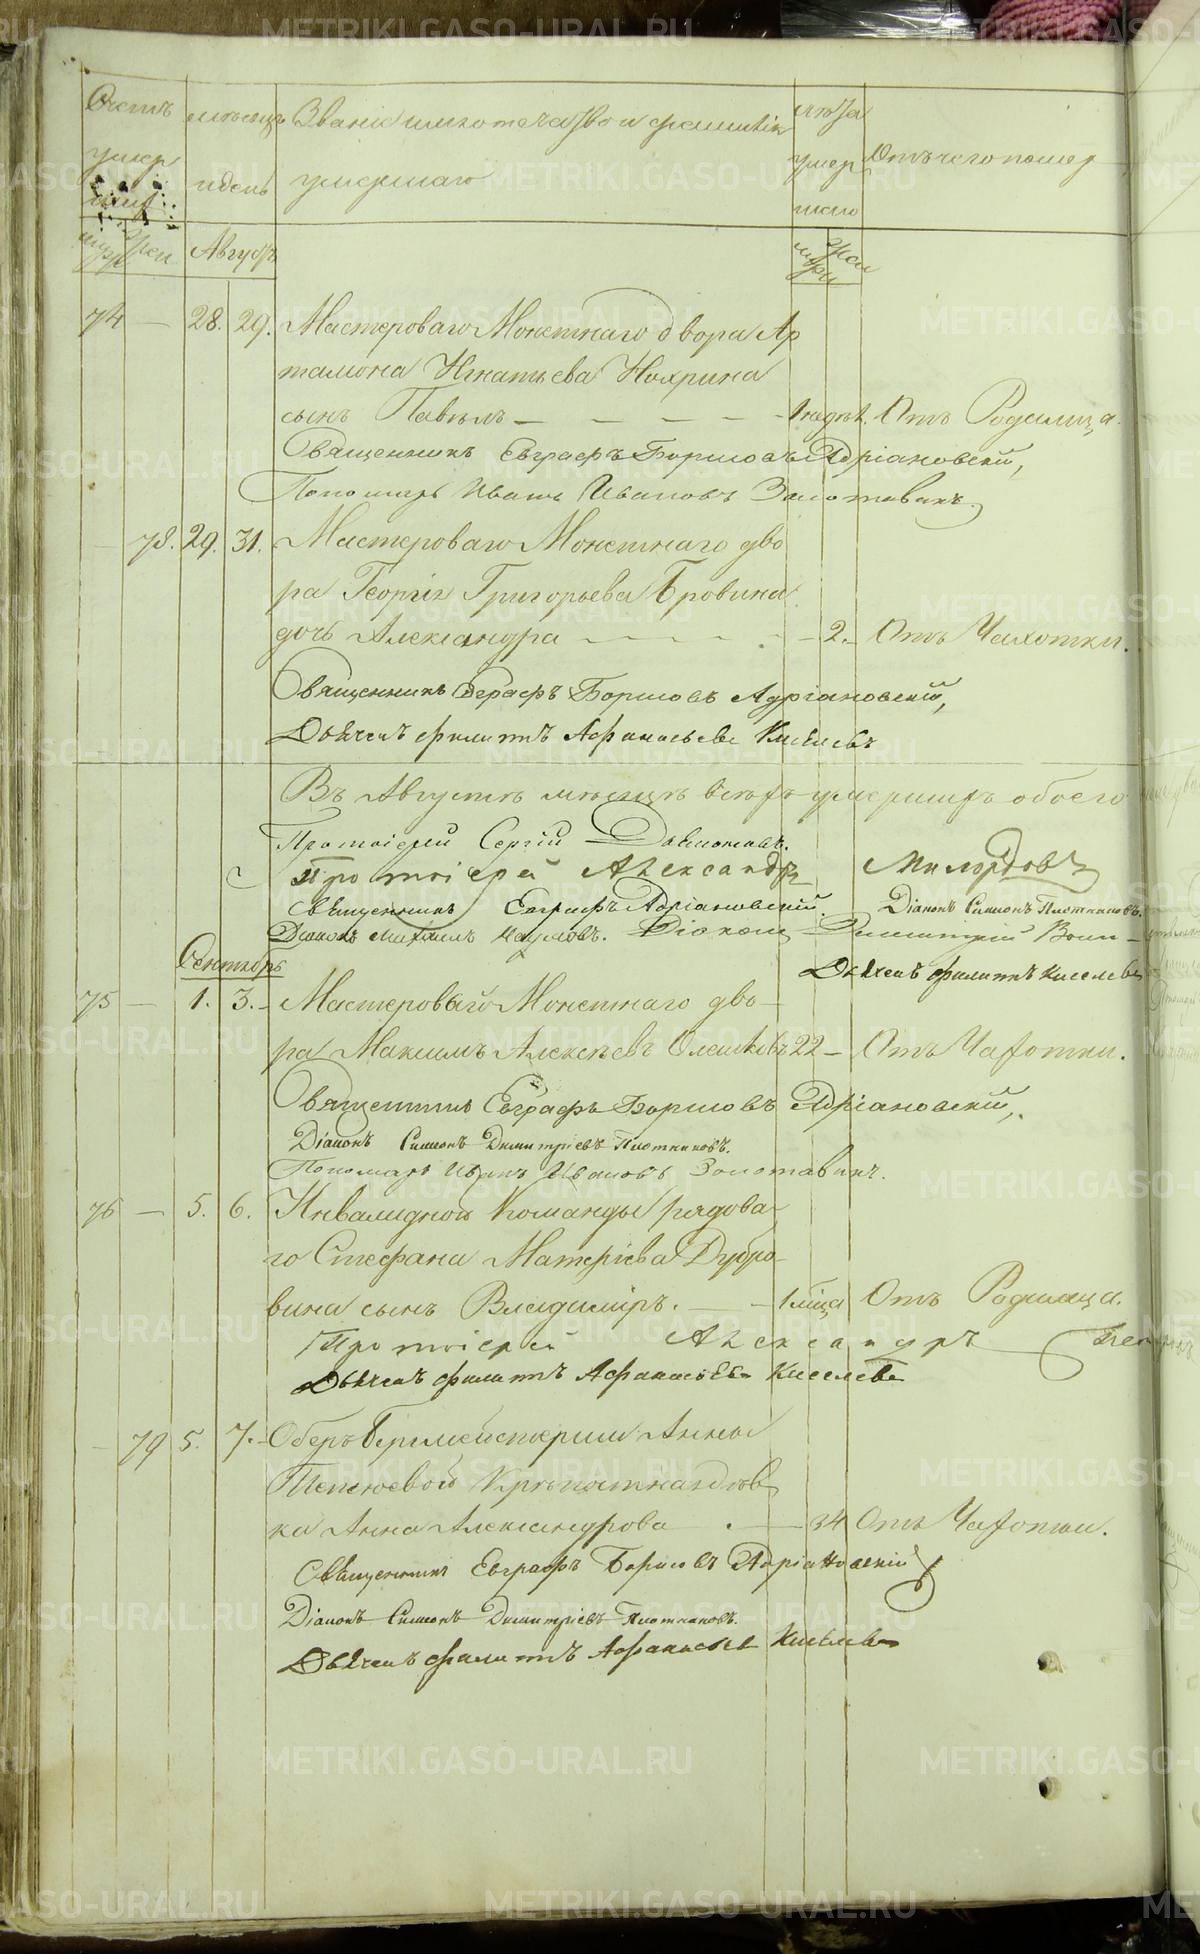 Счетъ умер шихъ
мѣсяцъ и день
Званіе имя отечество и фамилія умершаго
лѣта умер шаго
Отъ чего померъ
муж жен
Августъ
муж жен
74 — 28. 29. Мастероваго Монетнаго двора Ар
тамона Игнатьева Нохрина
сынъ Павелъ — — — — — 1 недѣл. Отъ Родимца.
Священникъ Евграфъ Борисовъ Адріановскій,
Пономарь Иванъ Ивановъ Золотавинъ.
— 78. 29. 31. Мастероваго Монетнаго дво
ра Георгія Григорьева Бровина
дочь Александра — — — — — 2. Отъ Чахотки.
Священникъ Евграфъ Борисовъ Адріановскій,
Дьячекъ Филиппъ Афанасьевъ Киселевъ
Въ Августѣ мѣсяцѣ всѣхъ умершихъ обоего
Протоіерей Сергій
Протоіерей Александръ
Священникъ Евграфъ Адріановскій. Діаконъ Симеонъ Плотниковъ.
Діаконъ Михаилъ Наумовъ. Діаконъ Димитрій
Сентябрь
Дьячекъ Филиппъ Киселевъ
75 — 1. 3. Мастеровый Монетнаго дво-
ра Максимъ Алексѣевъ 22 — Отъ Чахотки.
Священникъ Евграфъ Борисовъ Адріановскій,
Діаконъ Симеонъ Димитріевъ Плотниковъ.
Пономарь Иванъ Ивановъ Золотавинъ.
76 — 5. 6. Инвалидной Команды рядова-
го Стефана Дубро-
вина сынъ Владиміръ. — — 1 мѣца Отъ Родимца.
Протоіерей Александръ
Дьячекъ Филиппъ Афанасьевъ Киселевъ
— 79 5. 7. Оберъ Бергмейстерши Анны
Крѣпостная дѣв
ка Анна Александрова — 34 Отъ Чахотки.
Священникъ Евграфъ Борисовъ Адріановскій
Діаконъ Симеонъ Димитріевъ Плотниковъ.
Дьячекъ Филиппъ Афанасьевъ Киселевъ
METRIKI.GASO-URAL.RU